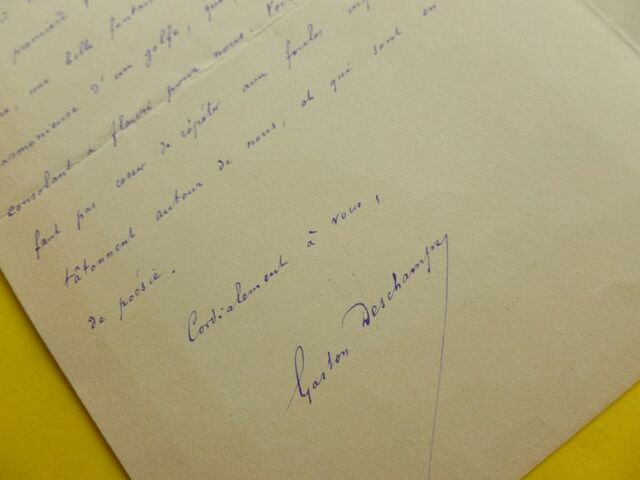 première
une belle fontaine
armonieuse d'un golfe, que
consolant a fleuri pour nous. Vous
faut pas cesser de répéter aux foules
tâtonnent autour de nous, et qui sont en
de poésie.
Cordialement à vous,
Gaston Deschamps